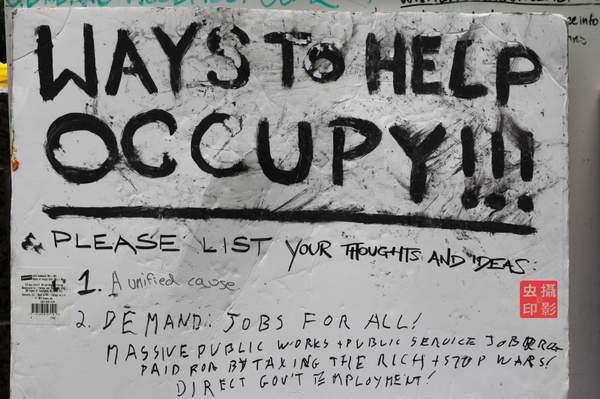 WAYS TO HELP
OCCUPY!!!
& PLEASE LIST YOUR THOUGHTS AND IDEAS:
1. A unified cause
2. DEMAND: JOBS FOR ALL!
MASSIVE PUBLIC WORKS + PUBLIC SERVICE JOB
PAID FOR BY TAXING THE RICH + STOP WARS!
DIRECT GOV'T EMPLOYMENT!
攝影
虫印